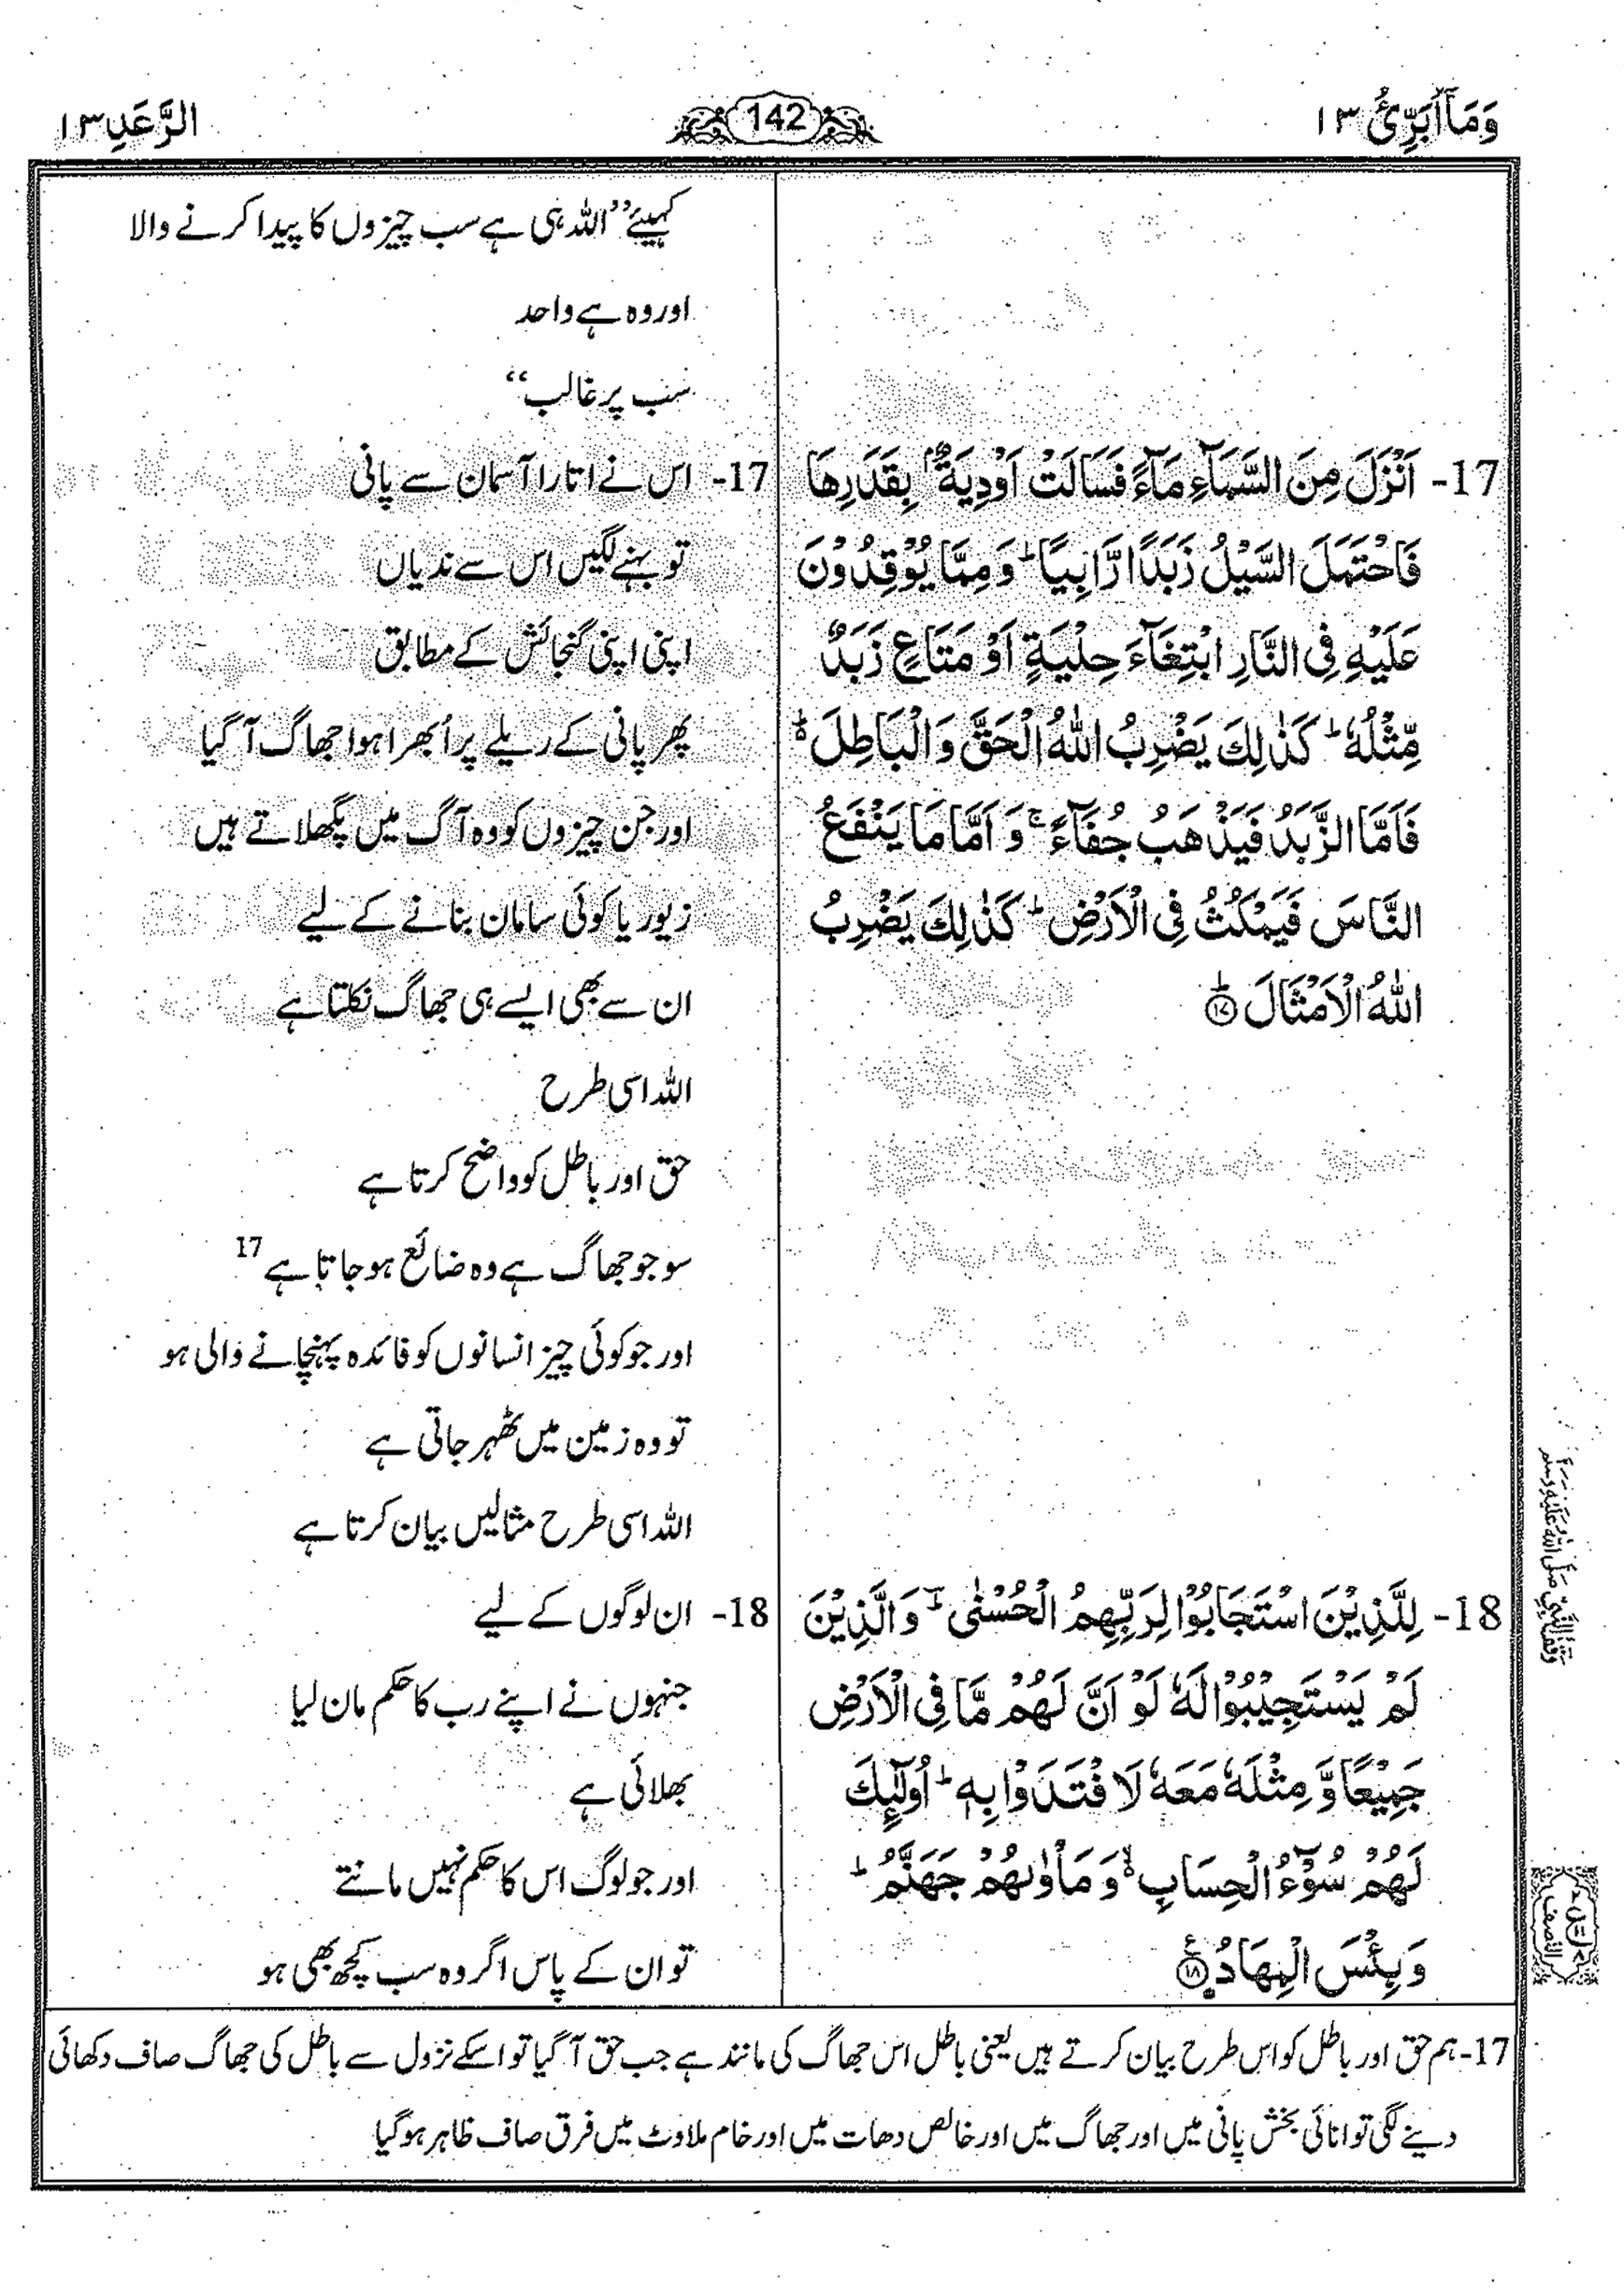 وَمَآ اُبَرِّئُ ١٣
142
الرَّعَدِ ١٣
کہیئے ’’اللہ ہی ہے سب چیزوں کا پیدا کرنے والا
اور وہ ہے واحد
سب پر غالب‘‘
17- اَنْزَلَ مِنَ السَّمَآءِ مَآءً فَسَالَتْ اَوْدِیَةٌۢ بِقَدَرِهَا
فَاحْتَمَلَ السَّیْلُ زَبَدًا رَّابِیًا ؕ وَ مِمَّا یُوْقِدُوْنَ
عَلَیْهِ فِی النَّارِ ابْتِغَآءَ حِلْیَةٍ اَوْ مَتَاعٍ زَبَدٌ
مِّثْلُهٗ ؕ كَذٰلِكَ یَضْرِبُ اللّٰهُ الْحَقَّ وَ الْبَاطِلَ ۬ؕ
فَاَمَّا الزَّبَدُ فَیَذْهَبُ جُفَآءً ۚ وَ اَمَّا مَا یَنْفَعُ
النَّاسَ فَیَمْكُثُ فِی الْاَرْضِ ؕ كَذٰلِكَ یَضْرِبُ
اللّٰهُ الْاَمْثَالَ ؕ۝۱۷
17- اس نے اتارا آسمان سے پانی
تو بہنے لگیں اس سے ندیاں
اپنی اپنی گنجائش کے مطابق
پھر پانی کے ریلے پر اُبھرا ہوا جھاگ آ گیا
اور جن چیزوں کو وہ آگ میں پگھلاتے ہیں
زیور یا کوئی سامان بنانے کے لیے
ان سے بھی ایسے ہی جھاگ نکلتا ہے
اللہ اسی طرح
حق اور باطل کو واضح کرتا ہے
سو جو جھاگ ہے وہ ضائع ہو جاتا ہے 17
اور جو کوئی چیز انسانوں کو فائدہ پہنچانے والی ہو
تو وہ زمین میں ٹھہر جاتی ہے
اللہ اسی طرح مثالیں بیان کرتا ہے
18- لِلَّذِیْنَ اسْتَجَابُوْا لِرَبِّهِمُ الْحُسْنٰی ؔؕ وَ الَّذِیْنَ
لَمْ یَسْتَجِیْبُوْا لَهٗ لَوْ اَنَّ لَهُمْ مَّا فِی الْاَرْضِ
جَمِیْعًا وَّ مِثْلَهٗ مَعَهٗ لَا فْتَدَوْا بِهٖ ؕ اُولٰٓئِكَ
لَهُمْ سُوْٓءُ الْحِسَابِ ۙ۬ وَ مَاْوٰىهُمْ جَهَنَّمُ ؕ
وَ بِئْسَ الْمِهَادُ ۠۝۱۸
18- ان لوگوں کے لیے
جنہوں نے اپنے رب کا حکم مان لیا
بھلائی ہے
اور جو لوگ اس کا حکم نہیں مانتے
تو ان کے پاس اگر وہ سب کچھ بھی ہو
وقف النَّبِی صَلَّی اللّٰهُ عَلَیْهِ وَسَلَّم
النصف
17- ہم حق اور باطل کو اس طرح بیان کرتے ہیں یعنی باطل اس جھاگ کی مانند ہے جب حق آ گیا تو اسکے نزول سے باطل کی جھاگ صاف دکھائی
دینے لگی توانائی بخش پانی میں اور جھاگ میں اور خالص دھات میں اور خام ملاوٹ میں فرق صاف ظاہر ہو گیا